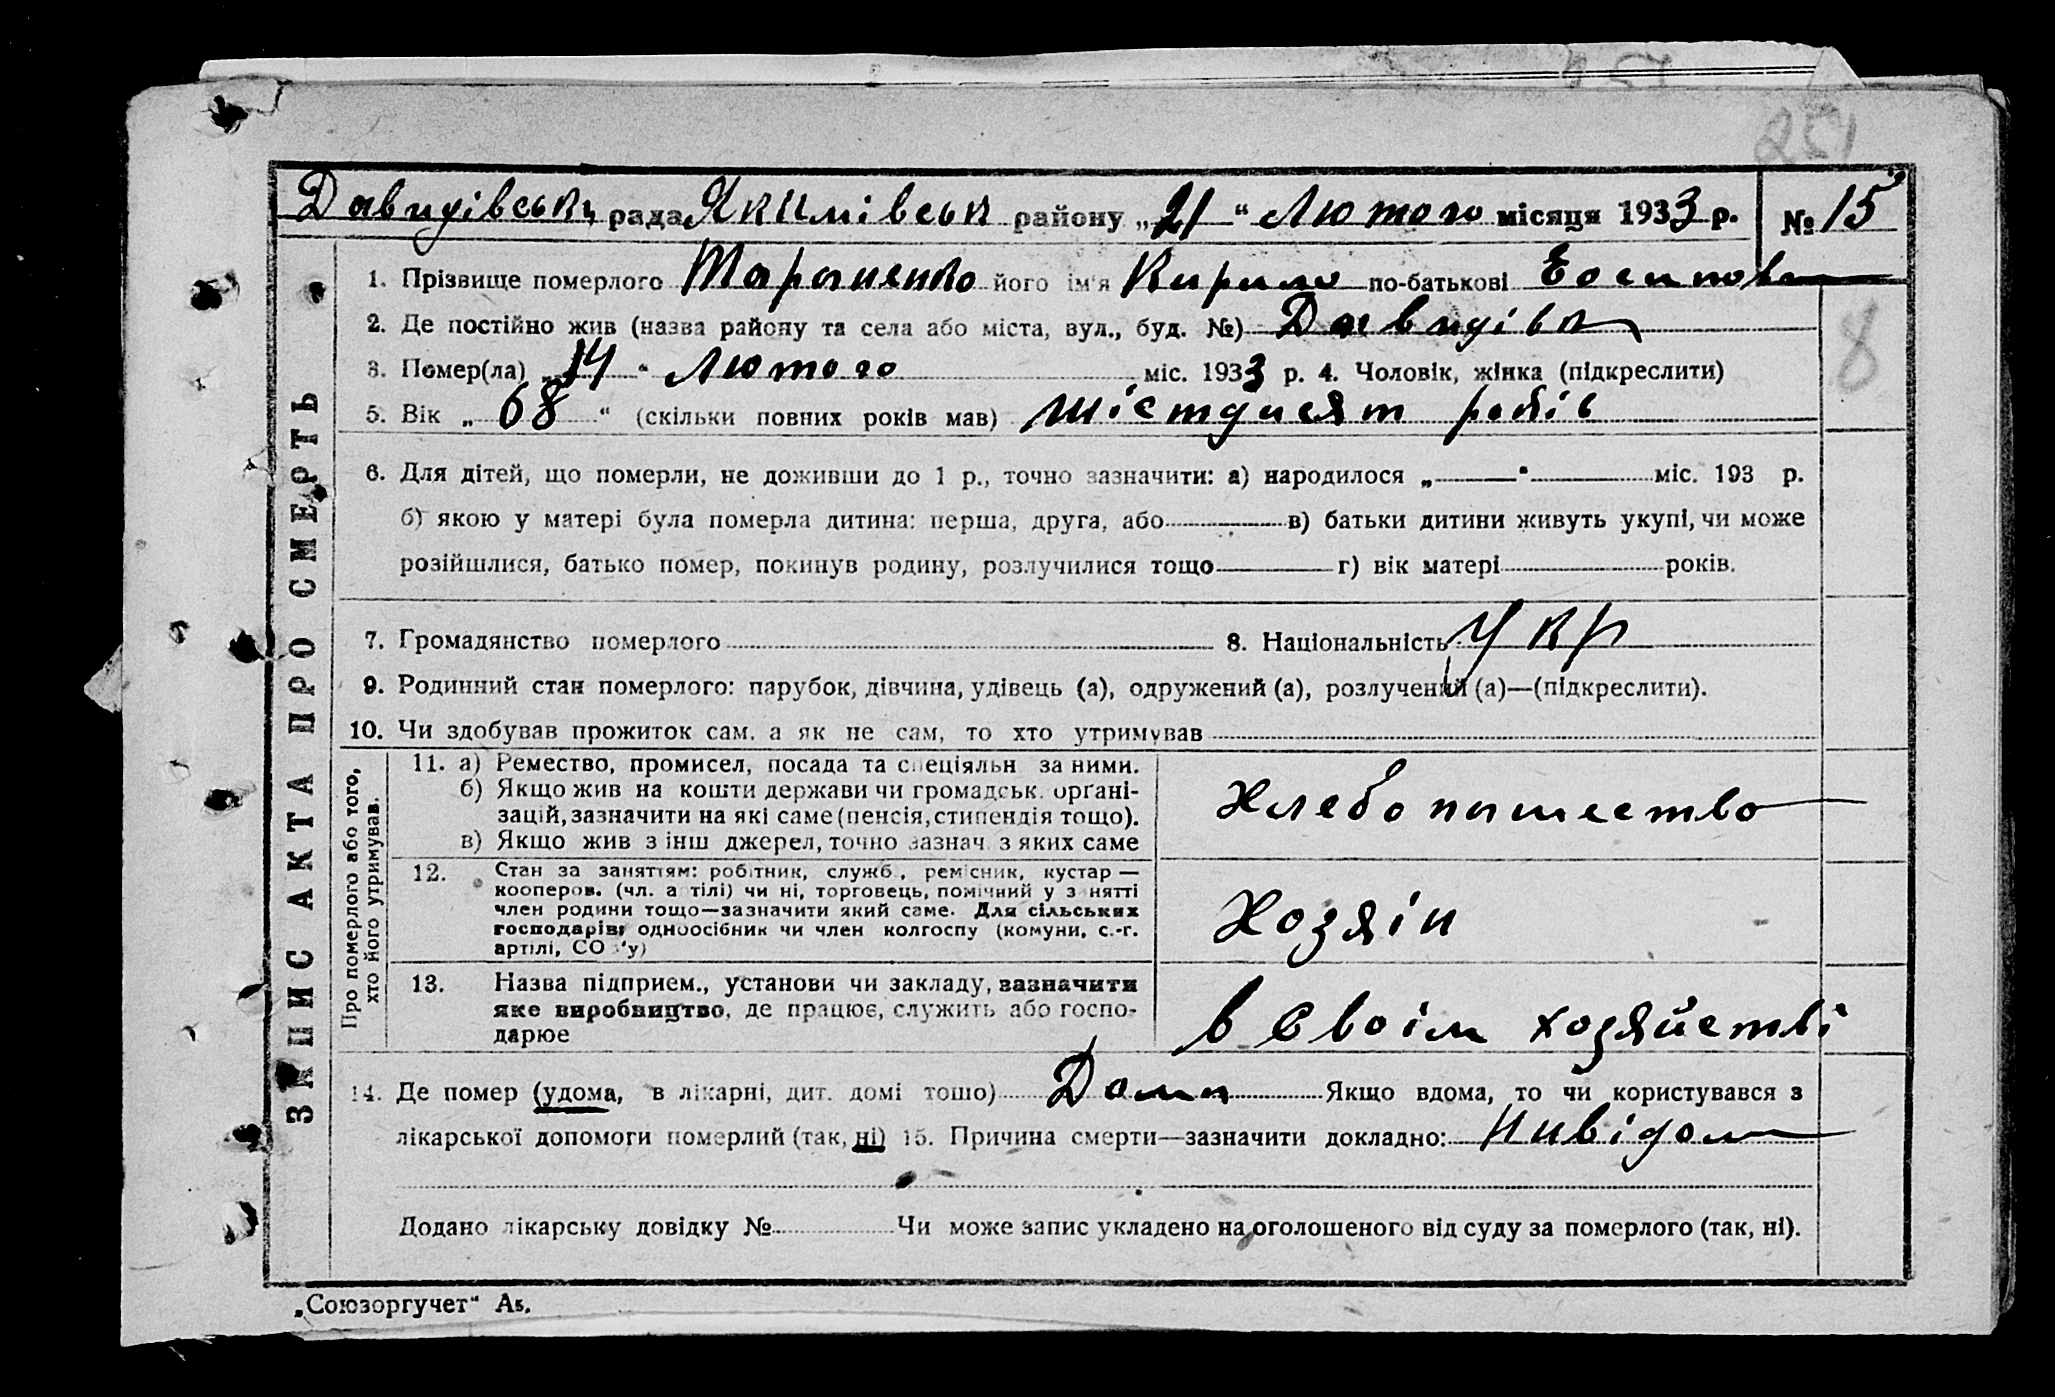 251
Давидівськ рада Якимівськ району „21“ Лютого місяця 1933 р. № 15
1. Прізвище померлого Тараненко його ім'я Кирило по-батькові Еосипов
2. Де постійно жив (назва району та села або міста, вул., буд. №) Давидівк
8
3. Помер(ла) „14“ Лютого міс. 1933 р. 4. Чоловік, жінка (підкреслити)
5. Вік „68“ (скільки повних років мав) шістдисят років
6. Для дітей, що померли, не доживши до 1 р., точно зазначити: а) народилося „—“ — міс. 193 р.
б) якою у матері була померла дитина: перша, друга, або — в) батьки дитини живуть укупі, чи може
розійшлися, батько помер, покинув родину, розлучилися тощо — г) вік матері — років.
7. Громадянство померлого 8. Національність Укр
9. Родинний стан померлого: парубок, дівчина, удівець (а), одружений (а), розлучений (а)—(підкреслити).
10. Чи здобував прожиток сам, а як не сам, то хто утримував
ЗАПИС АКТА ПРО СМЕРТЬ
Про померлого або того,
хто його утримував.
11. а) Ремество, промисел, посада та спеціяльн за ними.
б) Якщо жив на кошти держави чи громадськ. органі-
зацій, зазначити на які саме (пенсія, стипендія тощо).
в) Якщо жив з інш джерел, точно зазнач з яких саме
Хлебопашество
12. Стан за заняттям: робітник, служб., ремісник, кустар —
кооперов. (чл. а тілі) чи ні, торговець, помічний у з нятті
член родини тощо—зазначити який саме. Для сільських
господарів: одноосібник чи член колгоспу (комуни, с.-г.
артілі, СО у)
Хозяін
13. Назва підприєм., установи чи закладу, зазначити
яке виробництво, де працює, служить або госпо-
дарює
в своім хозяйстві
14. Де помер (удома, в лікарні, дит. домі тощо) Дома Якщо вдома, то чи користувався з
лікарської допомоги померлий (так, ні) 15. Причина смерти—зазначити докладно: Нивідом
Додано лікарську довідку № Чи може запис укладено на оголошеного від суду за померлого (так, ні).
„Союзоргучет“ А5.